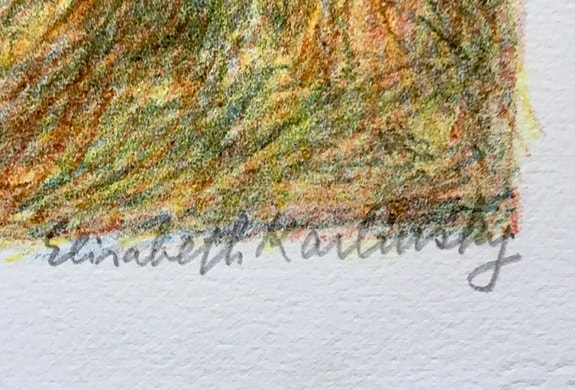 Elisabeth Karlinsky